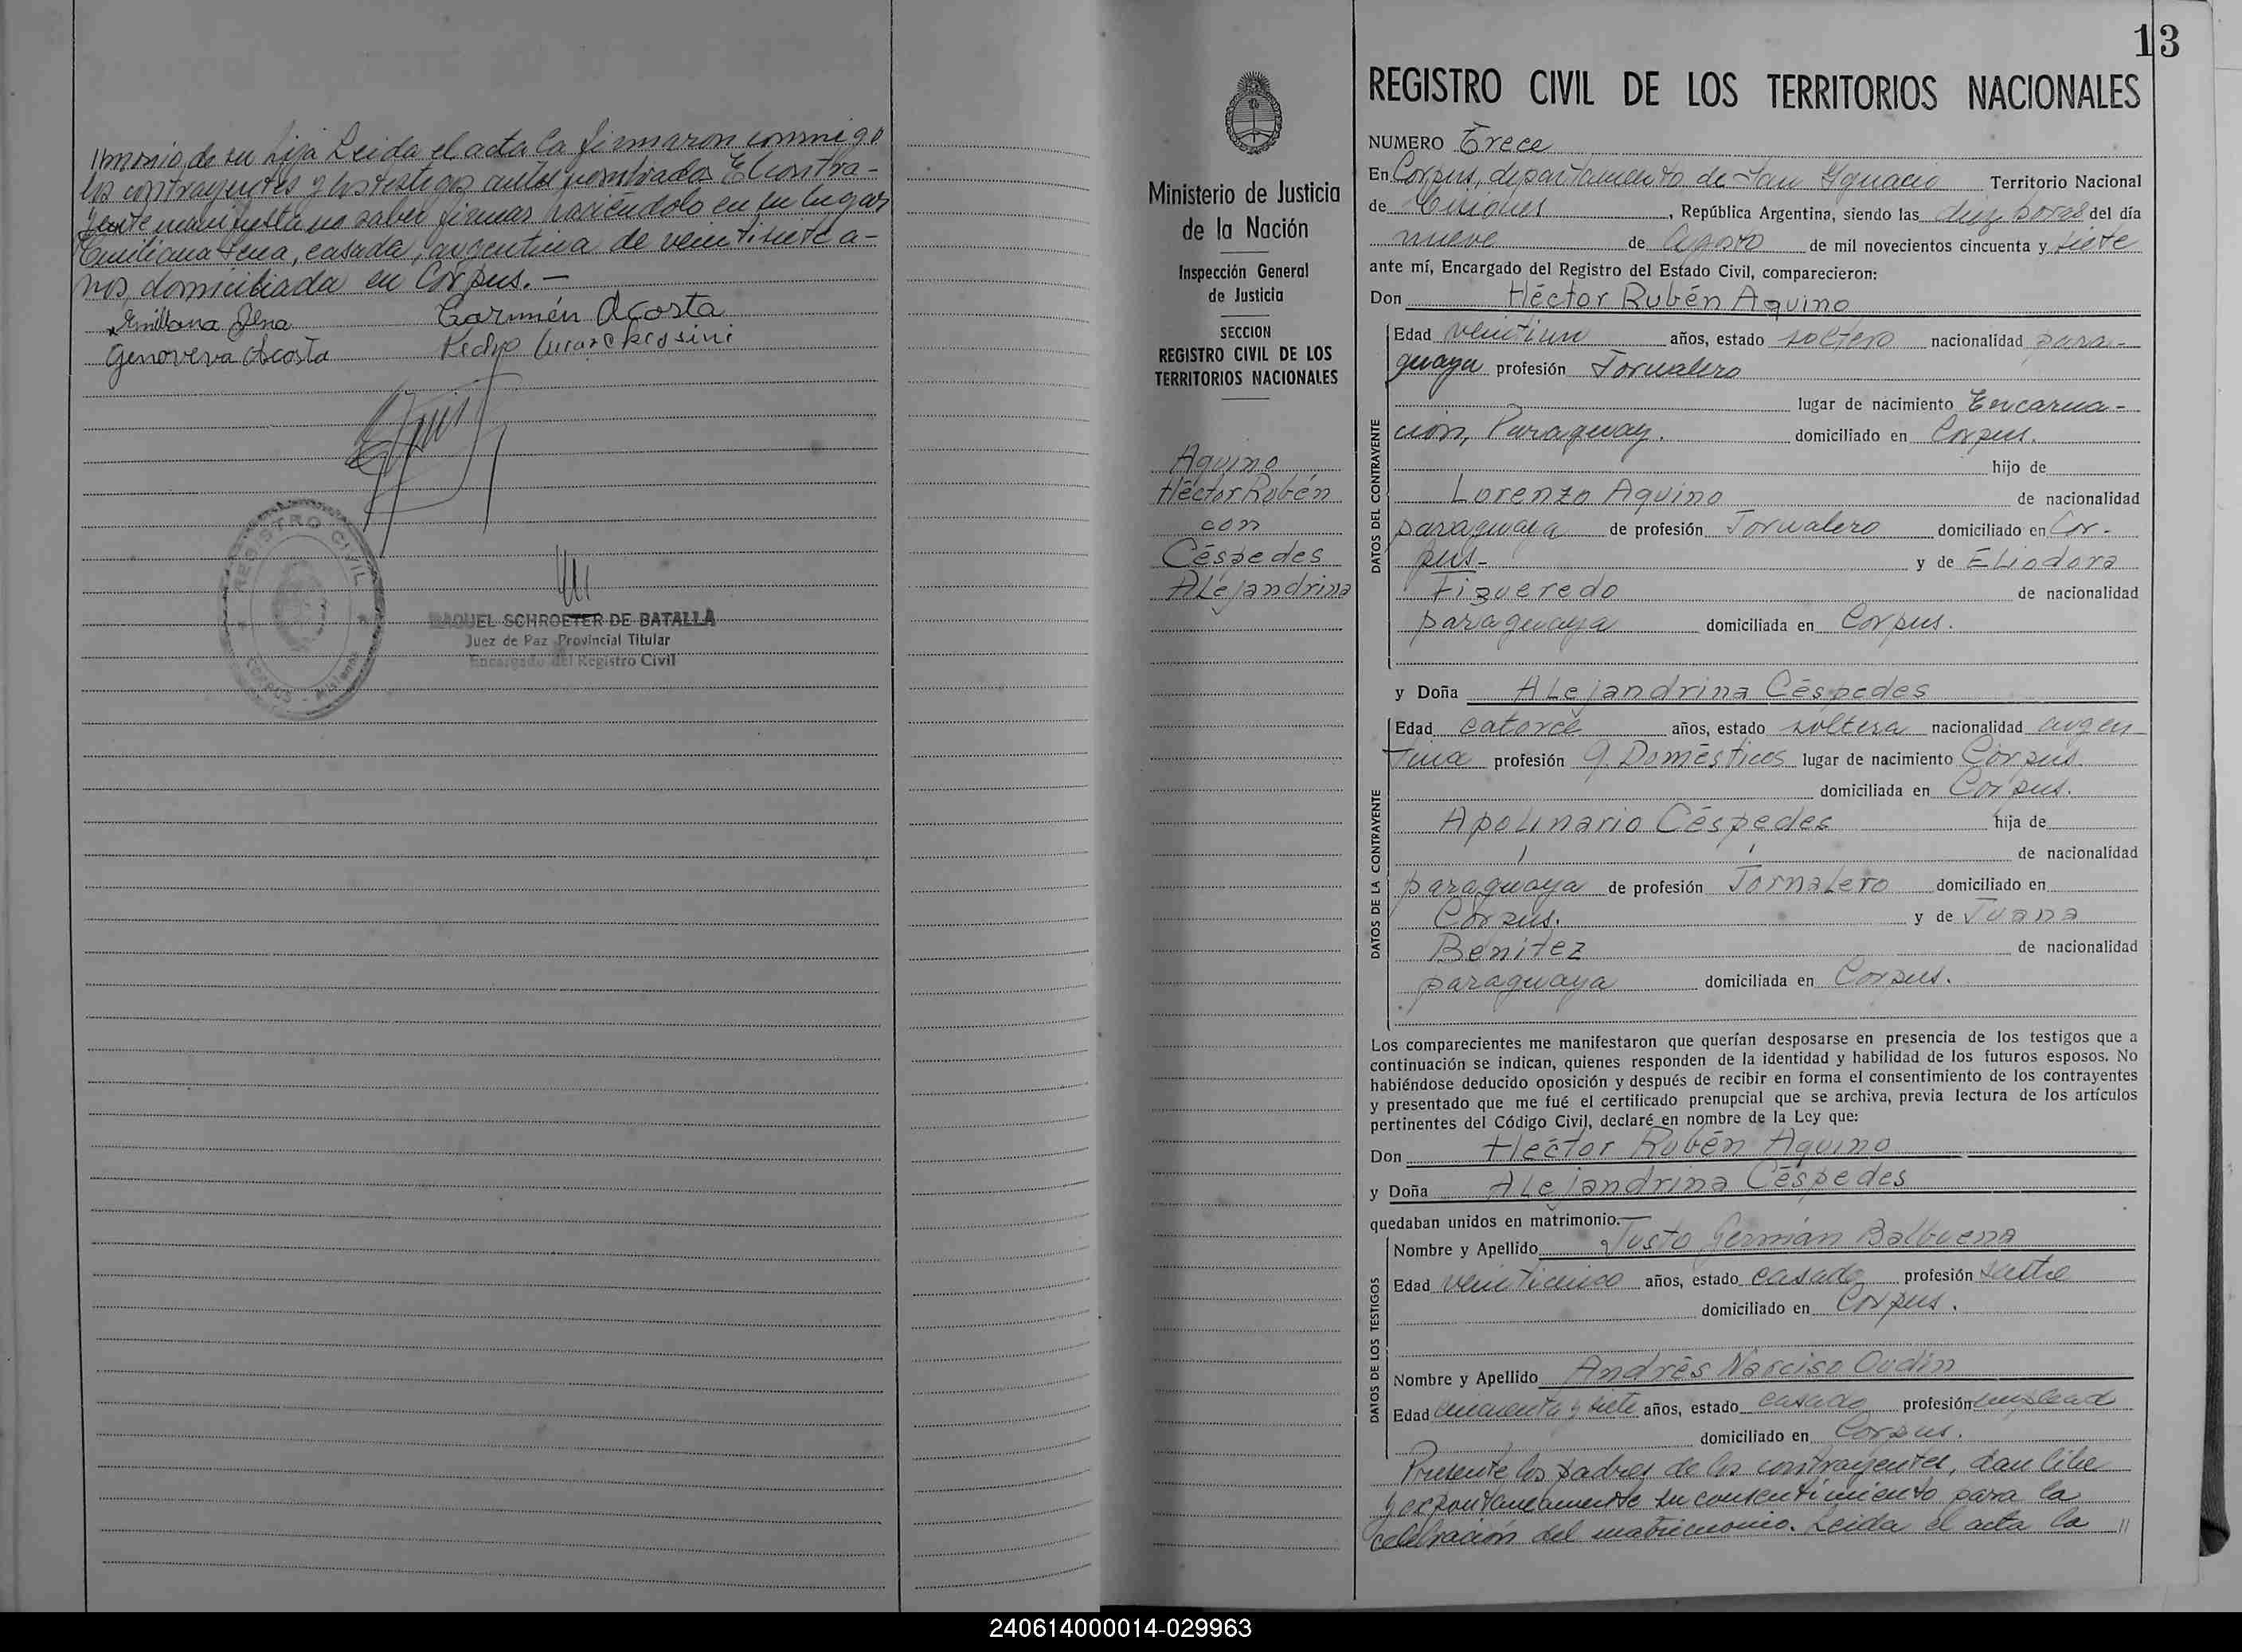 timonio de su hija Leida el acta la firmaron conmigo
los contrayentes y los testigos antes nombrados El contra-
yente manifiesta no saber firmar haciendolo en su lugar
Emiliana Sena, casada, argentina de veintisiete a-
ños, domiciliada en Corpus.—
Emiliana Sena Carmén Acosta
Genoveva Acosta Pedro
REGISTRO CIVIL
CORPUS - Misiones
RAQUEL SCHROETER DE BATALLA
Juez de Paz Provincial Titular
Encargado del Registro Civil
Ministerio de Justicia
de la Nación
Inspección General
de Justicia
SECCION
REGISTRO CIVIL DE LOS
TERRITORIOS NACIONALES
Aquino
Héctor Rubén
con
Céspedes
Alejandrina
13
REGISTRO CIVIL DE LOS TERRITORIOS NACIONALES
NUMERO Trece
En Corpus, departamento de San Ygnacio Territorio Nacional
de Misiones, República Argentina, siendo las diez horas del día
nueve de Agosto de mil novecientos cincuenta y siete
ante mí, Encargado del Registro del Estado Civil, comparecieron:
Don Héctor Rubén Aquino
DATOS DEL CONTRAYENTE
Edad veintiun años, estado soltero nacionalidad para-
guaya profesión Jornalero
lugar de nacimiento Encarna-
ción, Paraguay. domiciliado en Corpus.
hijo de
Lorenzo Aquino de nacionalidad
paraguaya de profesión Jornalero domiciliado en Cor-
pus- y de Eliodora
Figueredo de nacionalidad
paraguaya domiciliada en Corpus.
y Doña Alejandrina Céspedes
DATOS DE LA CONTRAYENTE
Edad catorce años, estado soltera nacionalidad argen
tina profesión Q. Domésticos lugar de nacimiento Corpus.
domiciliada en Corpus.
Apolinario Céspedes hija de
de nacionalidad
paraguaya de profesión Jornalero domiciliado en
Corpus. y de Juana
Benitez de nacionalidad
paraguaya domiciliada en Corpus.
Los comparecientes me manifestaron que querían desposarse en presencia de los testigos que a
continuación se indican, quienes responden de la identidad y habilidad de los futuros esposos. No
habiéndose deducido oposición y después de recibir en forma el consentimiento de los contrayentes
y presentado que me fué el certificado prenupcial que se archiva, previa lectura de los artículos
pertinentes del Código Civil, declaré en nombre de la Ley que:
Don Héctor Rubén Aquino
y Doña Alejandrina Céspedes
quedaban unidos en matrimonio.—
DATOS DE LOS TESTIGOS
Nombre y Apellido Justo Germán Balbuena
Edad veinticinco años, estado casado profesión sastre
domiciliado en Corpus.
Nombre y Apellido Andrés Narciso Oudin
Edad cincuenta y siete años, estado casado profesión empleado
domiciliado en Corpus.
Presente los padres de los contrayentes, dan libre
y expontaneamente su consentimiento para la
celebración del matrimonio. Leida el acta la //
240614000014-029963